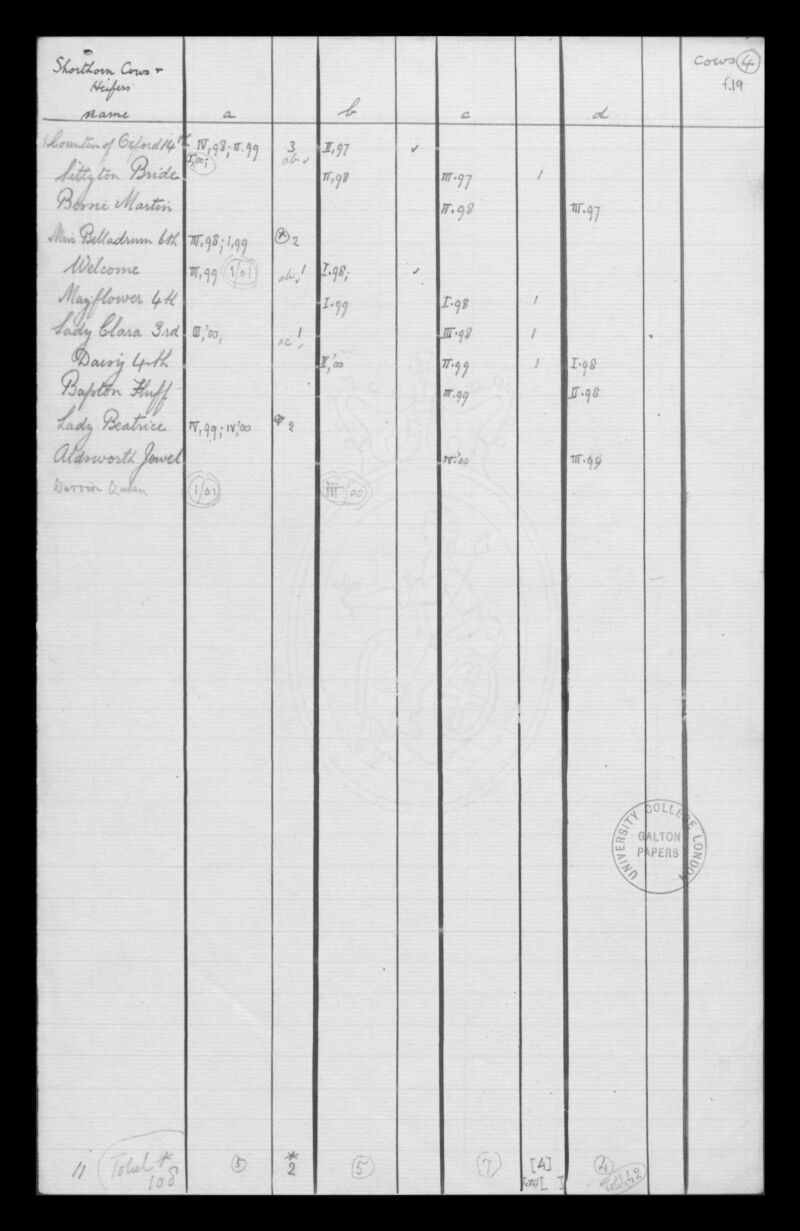 Shorthorn Cows &
Heifers
Cows 4
f.19
Name a b c d
Countess of Oxford 14th IV,98; II.99 3 II,97 ✓
I,'00; ab ✓
Sittyton Bride II,98 III.97 1
Bessie Martin II.98 III.97
Miss Belladrum 6th III,98; I,99 * 2
Welcome III,99 1/01 ab ✓ 1 I.98; ✓
Mayflower 4th I.99 I.98 1
Lady Clara 3rd III,'00; ac 1 III.98 1
Daisy 4th II,'00 II.99 1 I.98
Bapton Fluff III.99 II.98
Lady Beatrice IV,99; IV,'00 * 2
Aldsworth Jewel IV.'00 III.99
Queen 1/01 III/00
UNIVERSITY COLLEGE LONDON
GALTON
PAPERS
11 Total * 108 5 * 2 5 7 [4] 4
Total [ ] Total 42